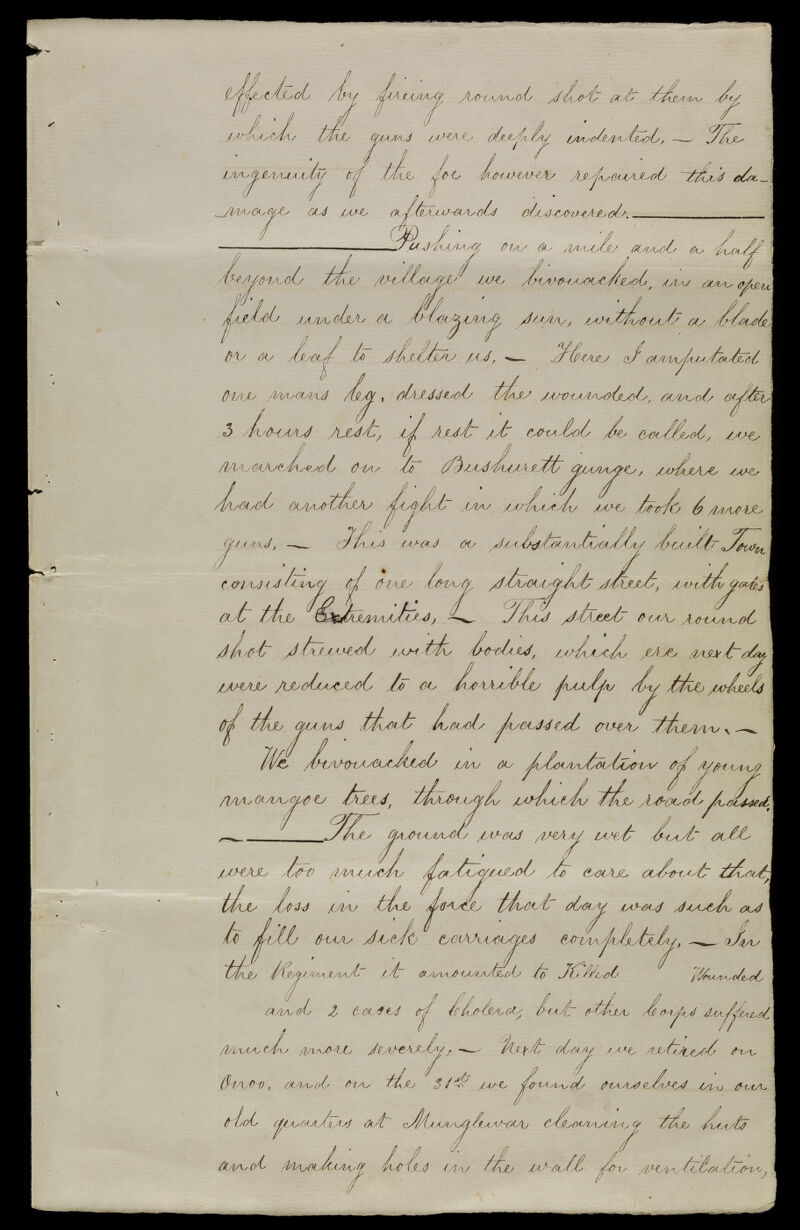 effected by fireing round shot at them by
which the guns were deeply indented. — The
ingenuity of the foe however repaired this da-
-mage as we afterwards discovered. ———
——— Pushing on a mile and a half
beyond the village we bivouacked, in an open
field under a blazing sun, without a blade
or a leaf to shelter us. — Here I amputated
one mans leg, dressed the wounded, and after
3 hours rest, if rest it could be called, we
marched on to Bushurett gunge, where we
had another fight in which we took 6 more
guns. — This was a substantially built Town
consisting of one long straight street, with gates
at the Extremities, — This street our round
shot strewed with bodies, which ere next day
were reduced to a horrible pulp by the wheels
of the guns that had passed over them. —
We bivouacked in a plantation of young
mangoe trees, through which the road passed.
— ——— The ground was very wet but all
were too much fatigued to care about that,
the loss in the force that day was such as
to fill our sick carriages completely. — In
the Regiment it amounted to Killed Wounded
and 2 cases of Cholera; but other Corps suffered
much more severely. — Next day we retired on
Onoo, and on the 31st we found ourselves in our
old quarters at Munglewar cleaning the huts
and making holes in the wall for ventilation,